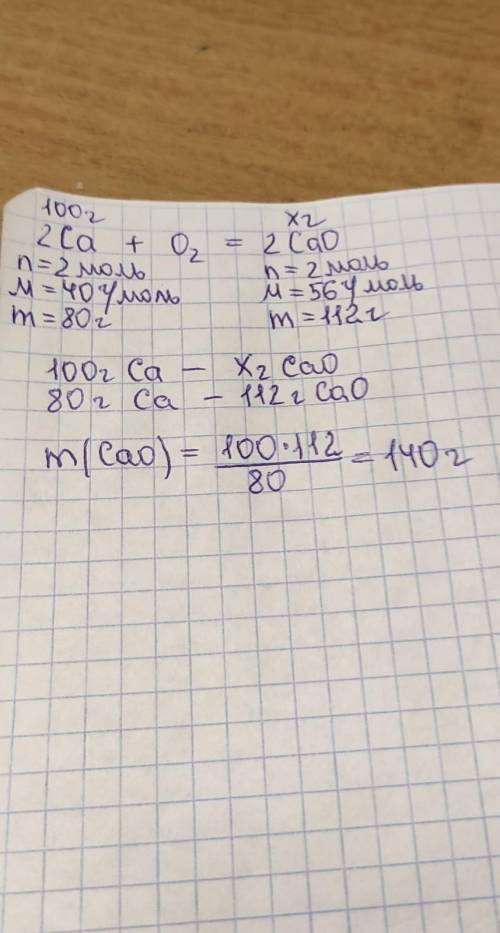 100г xг
2Ca + O₂ = 2CaO
n=2моль n=2моль
M=40г/моль M=56г/моль
m=80г m=112г
100г Ca – xг CaO
80г Ca – 112г CaO
m(CaO) = 100·112/80 = 140г